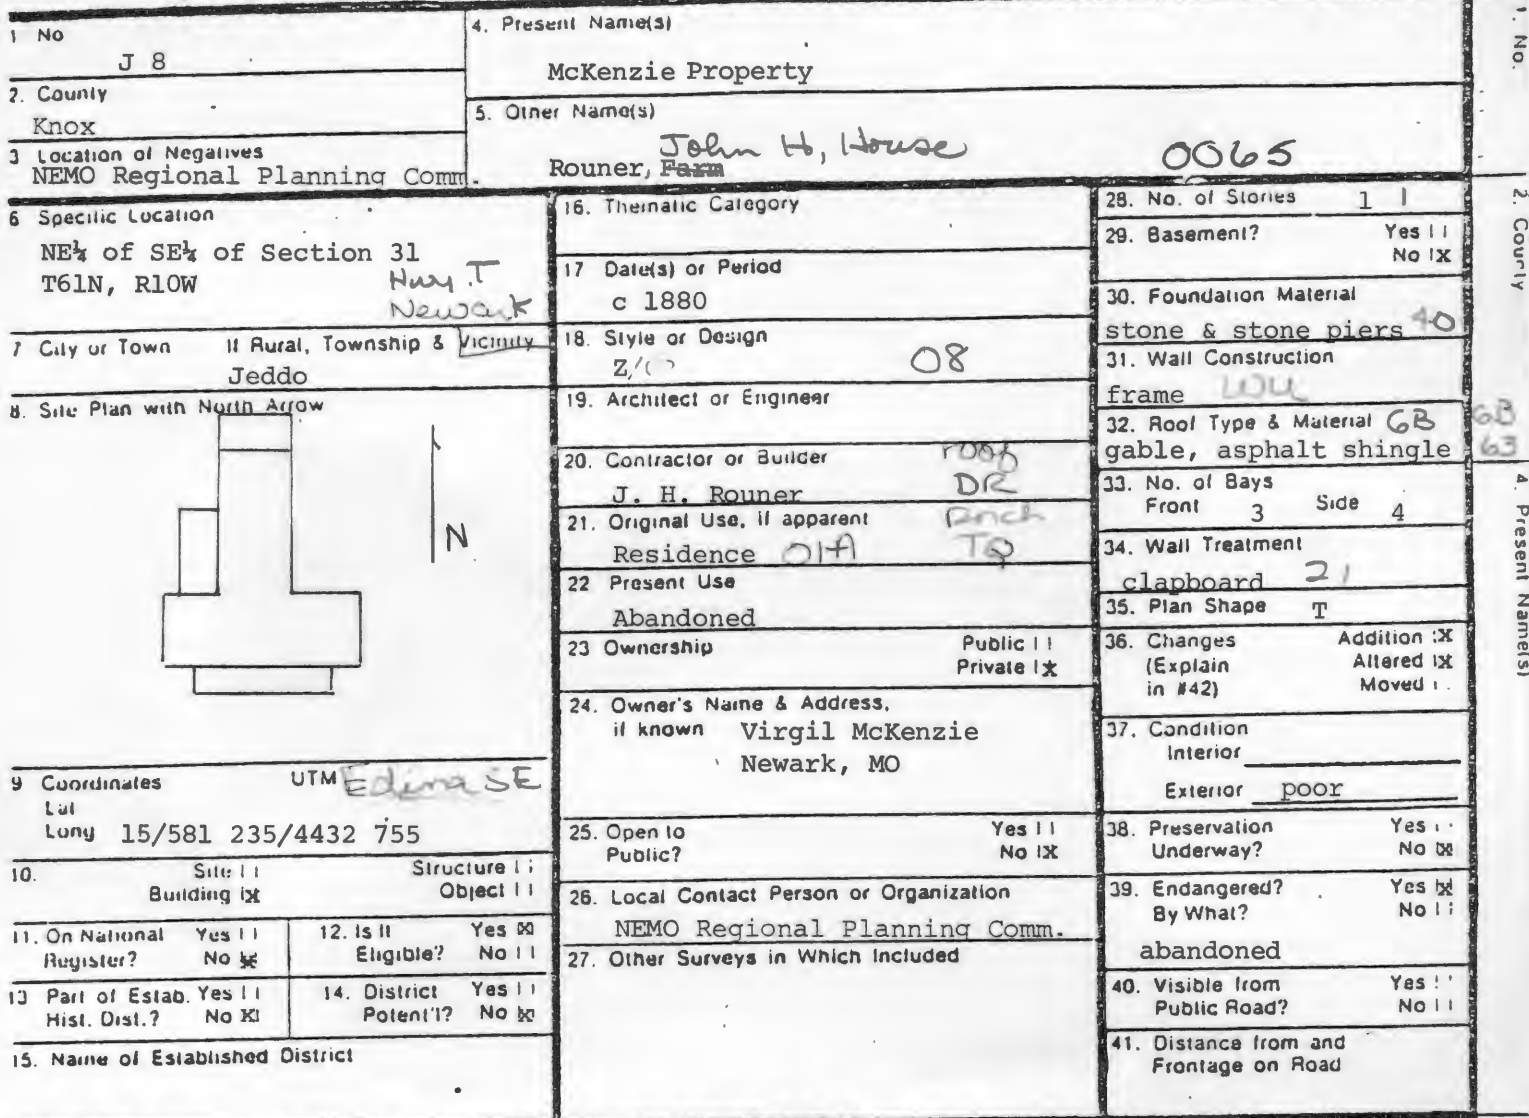 1 No
J 8
2. County
Knox
3 Location of Negatives
NEMO Regional Planning Comm.
4. Present Name(s)
McKenzie Property
5. Other Name(s)
John H, House
Rouner, Farm
0065
6 Specific Location
NE¼ of SE¼ of Section 31
T61N, R10W
Hwy. T
Newark
7 City or Town If Rural, Township & Vicinity
Jeddo
8. Site Plan with North Arrow
N
9 Coordinates UTM Edina SE
Lat
Long 15/581 235/4432 755
10. Site | | Structure | |
Building |X Object | |
11. On National Yes | |
Register? No |X
12. Is It Yes |X|
Eligible? No | |
13 Part of Estab. Yes | |
Hist. Dist.? No |X|
14. District Yes | |
Potent'l? No |X|
15. Name of Established District
16. Thematic Category
17 Date(s) or Period
c 1880
18. Style or Design
08
19. Architect or Engineer
20. Contractor or Builder roof
J. H. Rouner DR
21. Original Use, if apparent Porch
Residence 01A TQ
22 Present Use
Abandoned
23 Ownership Public | |
Private |X
24. Owner's Name & Address,
if known Virgil McKenzie
Newark, MO
25. Open to Yes | |
Public? No |X
26. Local Contact Person or Organization
NEMO Regional Planning Comm.
27. Other Surveys in Which Included
28. No. of Stories 1 1
29. Basement? Yes | |
No |X
30. Foundation Material
stone & stone piers 40
31. Wall Construction
frame
32. Roof Type & Material GB
gable, asphalt shingle
GB
63
33. No. of Bays
Front 3 Side 4
34. Wall Treatment
clapboard 21
35. Plan Shape T
36. Changes Addition |X
(Explain Altered |X
in #42) Moved |
37. Condition
Interior
Exterior poor
38. Preservation Yes | |
Underway? No |X|
39. Endangered? Yes |X|
By What? No | |
abandoned
40. Visible from Yes | |
Public Road? No | |
41. Distance from and
Frontage on Road
1. No.
2. County
4. Present Name(s)